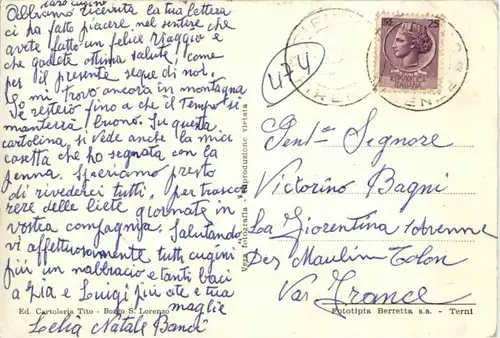 caro cugino
Abbiamo ricevuta la tua lettera
ci ha fatto piacere nel sentire che
avete fatto un felice viaggio e
che godete ottima salute, come
per il presente segue di noi,
Io mi trovo ancora in montagna
e resterò fino a che il tempo si
manterrà buono. Su questa
cartolina si vede anche la mia
casetta che ho segnata con la
penna. Speriamo presto
di rivederci tutti, per trascor
rere delle liete giornate in
vostra compagnia. Salutando
vi affettuosamente tutti cugini
più un abbraccio e tanti baci
a zia e Luigi più a te e tua
maglie
Lelia Natale Banci
Ed. Cartoleria Tito - Borgo S. Lorenzo
Vera fotografia - Riproduzione vietata
474
LIRE
REPVBBLICA
ITALIANA
FIRENZE
Gent° Signore
Vittorino Bagni
La Fiorentina
Des Maulin Tolon
Var France
Fototipia Berretta s.a. - Terni